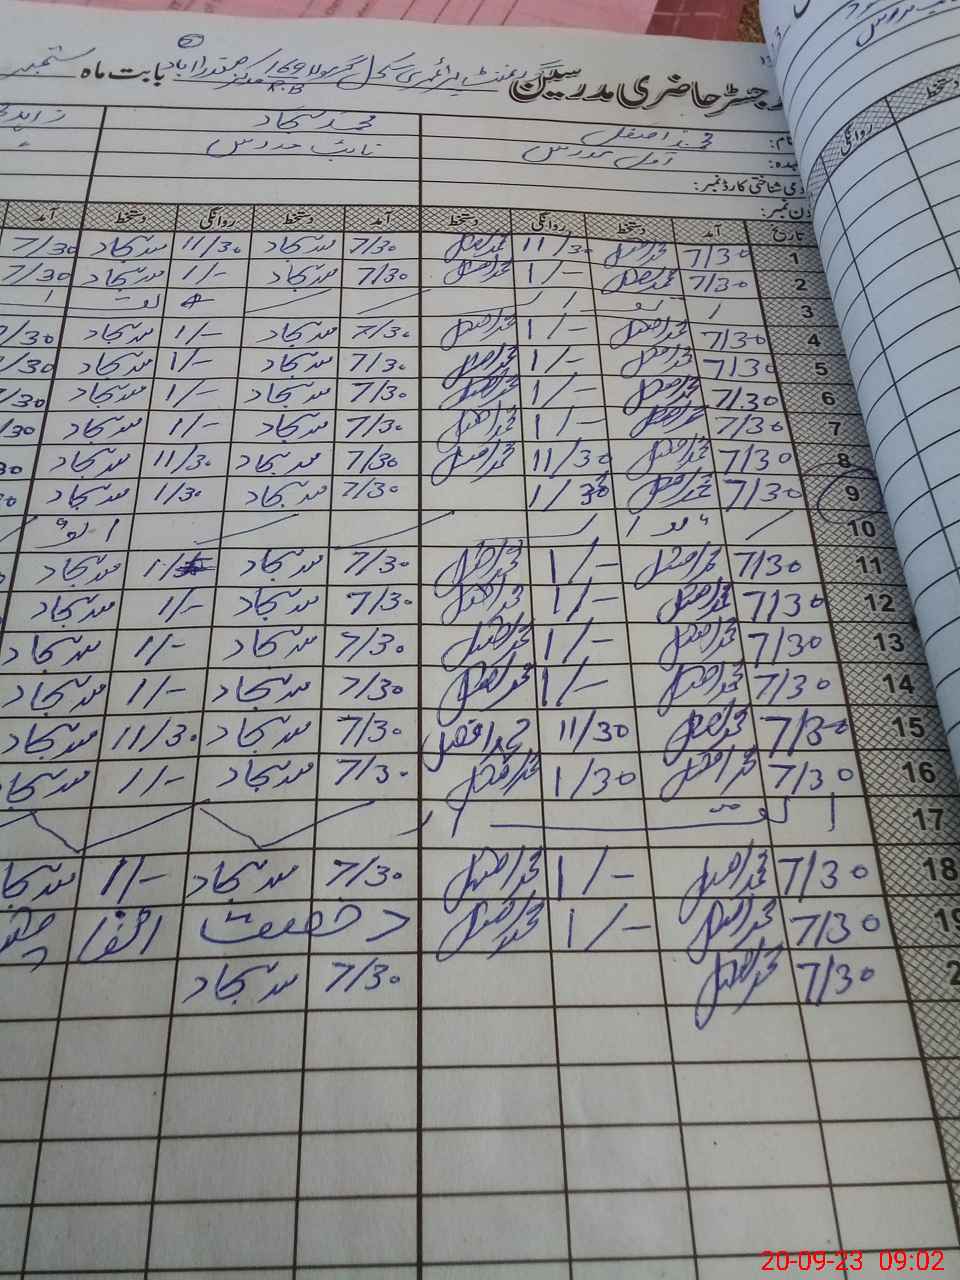 رجسٹر حاضری مدرسین گورنمنٹ پرائمری سکول 169 صفدرآباد بابت ماہ ستمبر
R.B
نام: محمد افضل محمد سجاد
عہدہ: اول مدرس نائب مدرس
قومی شناختی کارڈ نمبر:
فون نمبر:
تاریخ آمد دستخط روانگی دستخط آمد دستخط روانگی دستخط آمد
1 7/30 محمد افضل 11/30 محمد افضل 7/30 سجاد 11/30 سجاد 7/30
2 7/30 محمد افضل 1/- محمد افضل 7/30 سجاد 1/- سجاد 7/30
3 ا تو ا ر ا تو ا
4 7/30 محمد افضل 1/- محمد افضل 7/30 سجاد 1/- سجاد 7/30
5 7/30 محمد افضل 1/- محمد افضل 7/30 سجاد 1/- سجاد /30
6 7/30 محمد افضل 1/- محمد افضل 7/30 سجاد 1/- سجاد /30
7 7/30 محمد افضل 1/- محمد افضل 7/30 سجاد 1/- سجاد /30
8 7/30 محمد افضل 11/30 محمد افضل 7/30 سجاد 11/30 سجاد 30
9 7/30 محمد افضل 1/30 7/30 سجاد 1/30 سجاد 0
10 ا تو ا ر ا تو
11 7/30 محمد افضل 1/- محمد افضل 7/30 سجاد 1/ سجاد
12 7/30 محمد افضل 1/- محمد افضل 7/30 سجاد 1/- سجاد
13 7/30 محمد افضل 1/- محمد افضل 7/30 سجاد 1/- سجاد
14 7/30 محمد افضل 1/- محمد افضل 7/30 سجاد 1/- سجاد
15 7/30 محمد افضل 11/30 محمد افضل 7/30 سجاد 11/30 سجاد
16 7/30 محمد افضل 1/30 محمد افضل 7/30 سجاد 1/- سجاد
17 ا تو ا ر
18 7/30 محمد افضل 1/- محمد افضل 7/30 سجاد 1/- سجاد
19 7/30 محمد افضل 1/- محمد افضل رخصت اتفاقیہ
2 7/30 محمد افضل 7/30 سجاد
دستخط
روانگی
20-09-23 09:02